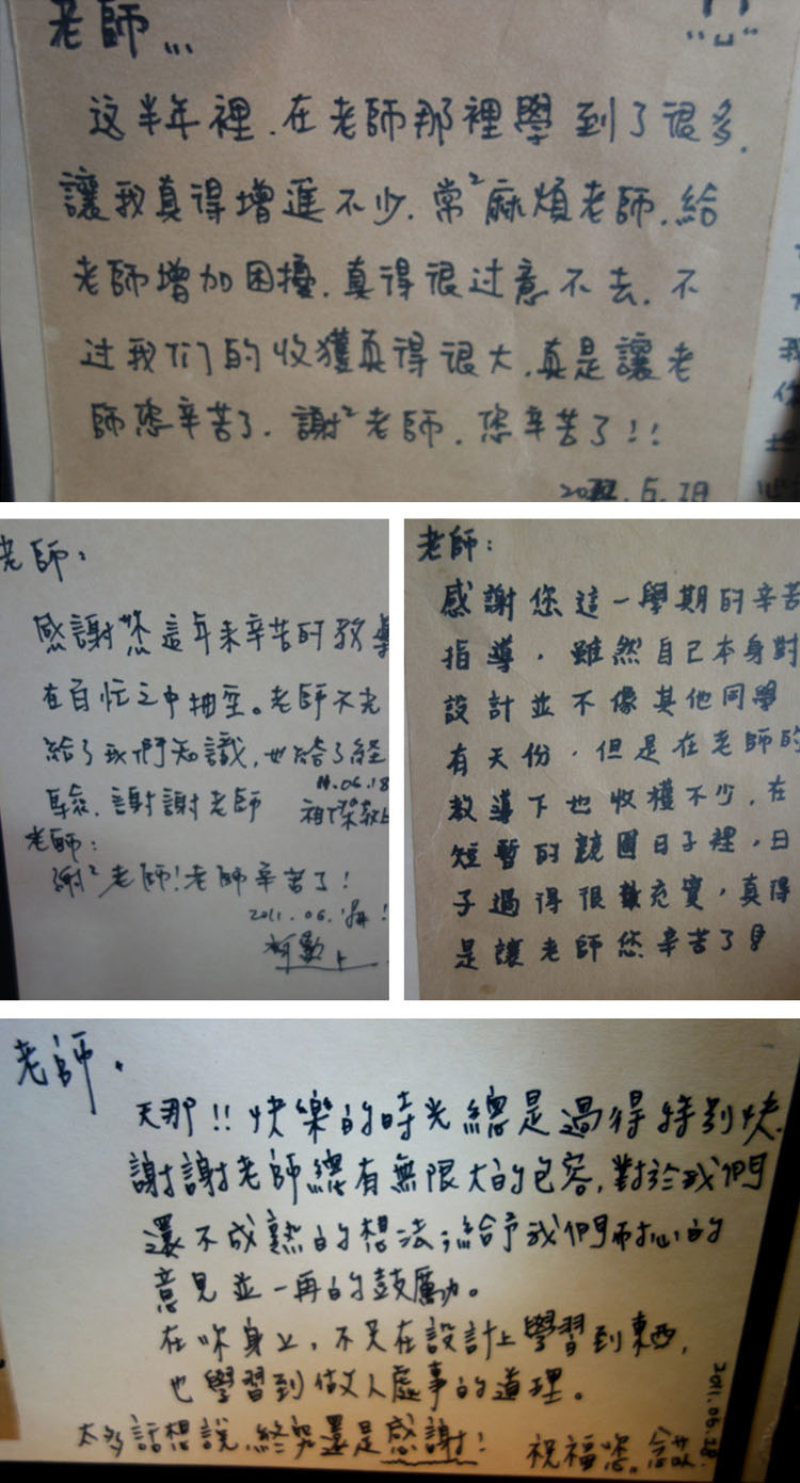 老師...
这半年裡.在老師那裡學到了很多.
讓我真得增進不少.常²麻煩老師.給
老師增加困擾.真得很过意不去.不
过我们的收獲真得很大.真是讓老
師您辛苦了.謝²老師.您辛苦了!!
老師:
感謝您這年來辛苦的教導
在百忙之中抽空。老師不光
給了我們知識,也給了經
驗.謝謝老師
11.06.18
老師:
謝²老師!老師辛苦了!
2011.06.
老師:
感謝您這一學期的辛苦
指導,雖然自己本身對
設計並不像其他同學
有天份,但是在老師的
教導下也收穫不少,在
短暫的競圖日子裡,日
子過得很充實,真得
是讓老師您辛苦了!
老師.
天那!!快樂的時光總是過得特別快.
謝謝老師總有無限大的包容,對於我們
還不成熟的想法;給予我們耐心的
意見並一再的鼓勵。
在你身上,不只在設計上學習到東西,
也學習到做人處事的道理。
太多話想說,終究還是感謝!
祝福您。
2011.06.